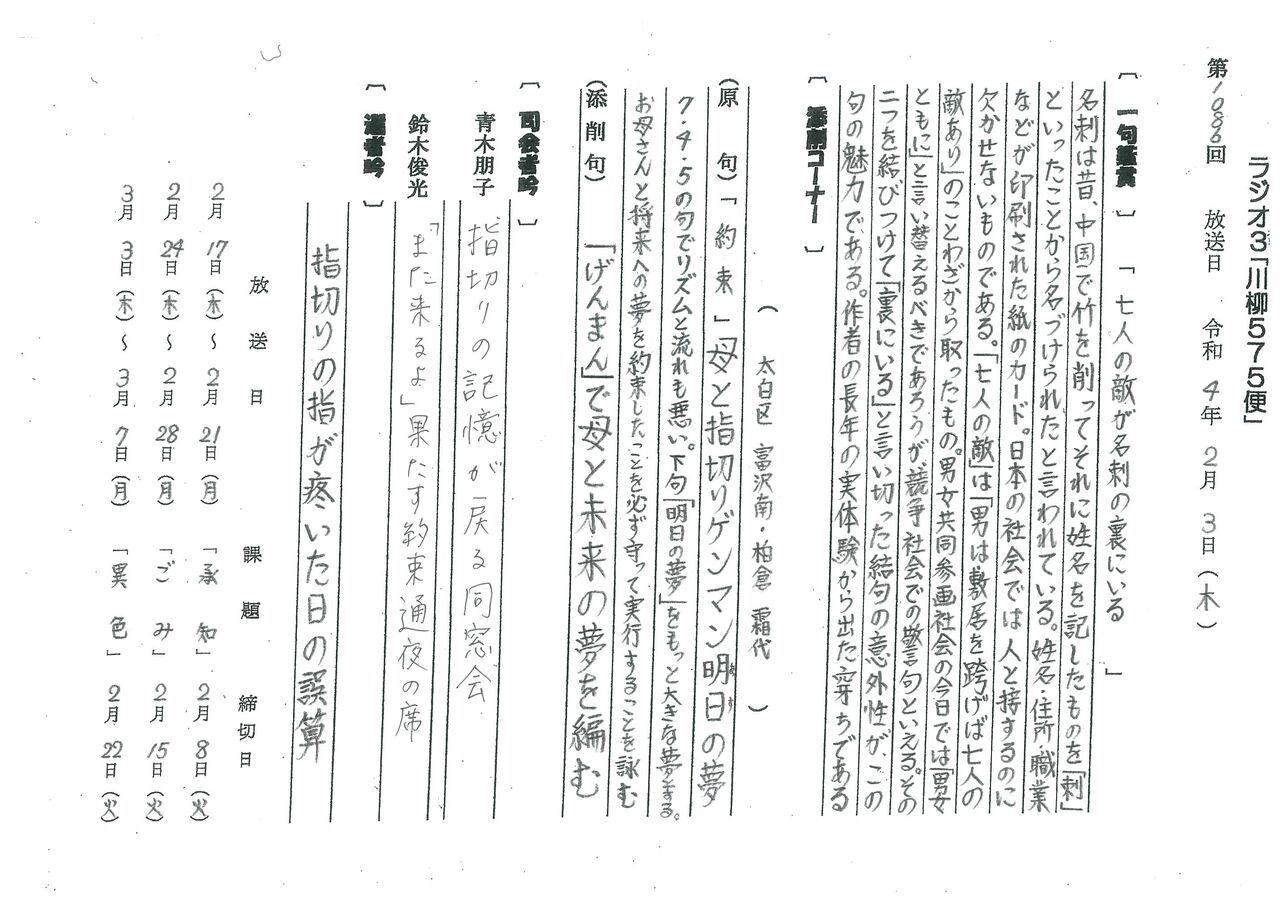 ラジオ3「川柳575便」
第1086回　放送日　令和4年2月3日(木)
〔一句鑑賞〕「七人の敵が名刺の裏にいる」
名刺は昔、中国で竹を削ってそれに姓名を記したものを「刺」
といったことから名づけられたと言われている。姓名・住所・職業
などが印刷された紙のカード。日本の社会では人と接するのに
欠かせないものである。「七人の敵」は「男は敷居を跨げば七人の
敵あり」のことわざから取ったもの。男女共同参画社会の今日では「男女
ともに」と言い替えるべきであろうが競争社会での警句といえる。その
二つを結びつけて「裏にいる」と言い切った結句の意外性が、この
句の魅力である。作者の長年の実体験から出た穿ちである
〔添削コーナー〕
(太白区　富沢南・柏倉　霜代)
(原　句)「約束」母と指切りゲンマン明日の夢
あす
7・4・5の句でリズムと流れも悪い。下句「明日の夢」をもっと大きな夢とする。
お母さんと将来への夢を約束したことを必ず守って実行することを詠む
(添削句)「げんまん」で母と未来の夢を編む
〔司会者吟〕
青木朋子　指切りの記憶が戻る同窓会
鈴木俊光　「また来るよ」果たす約束通夜の席
〔選者吟〕
指切りの指が疼いた日の誤算
放送日　課題　締切日
2月17日(木)～2月21日(月)「承知」2月8日(火)
2月24日(木)～2月28日(月)「ごみ」2月15日(火)
3月3日(木)～3月7日(月)「異色」2月22日(火)